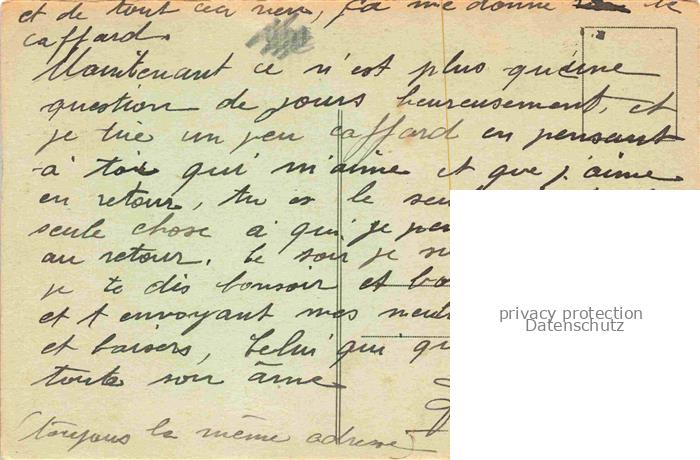 et de tout cela rien, ça me donne le
caffard.
Maintenant ce n'est plus qu'une
question de jours heureusement, et
je tue un peu caffard en pensant
à toi qui m'aime et que j'aime
en retour, tu es le seu
seule chose à qui je pen
au retour. Le soir je
je te dis bonsoir et bo
et t envoyant mes meil
et baisers, Celui qui
toute son âme
(toujours la même adresse)
privacy protection
Datenschutz